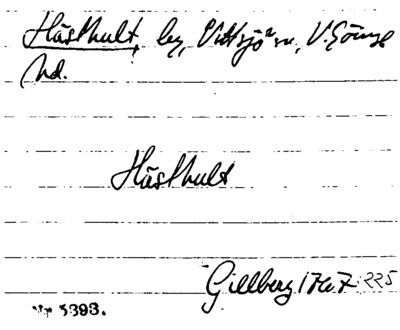 Hästhult, by, Vittsjö sn, V. Göinge
hd.
Hästhult
Gillberg 1767 225
Nr 5393.